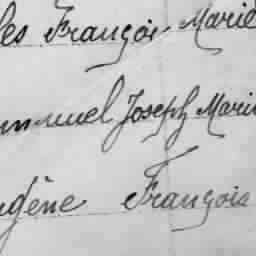 les François Marie
nmuel Joseph Marie
gène François